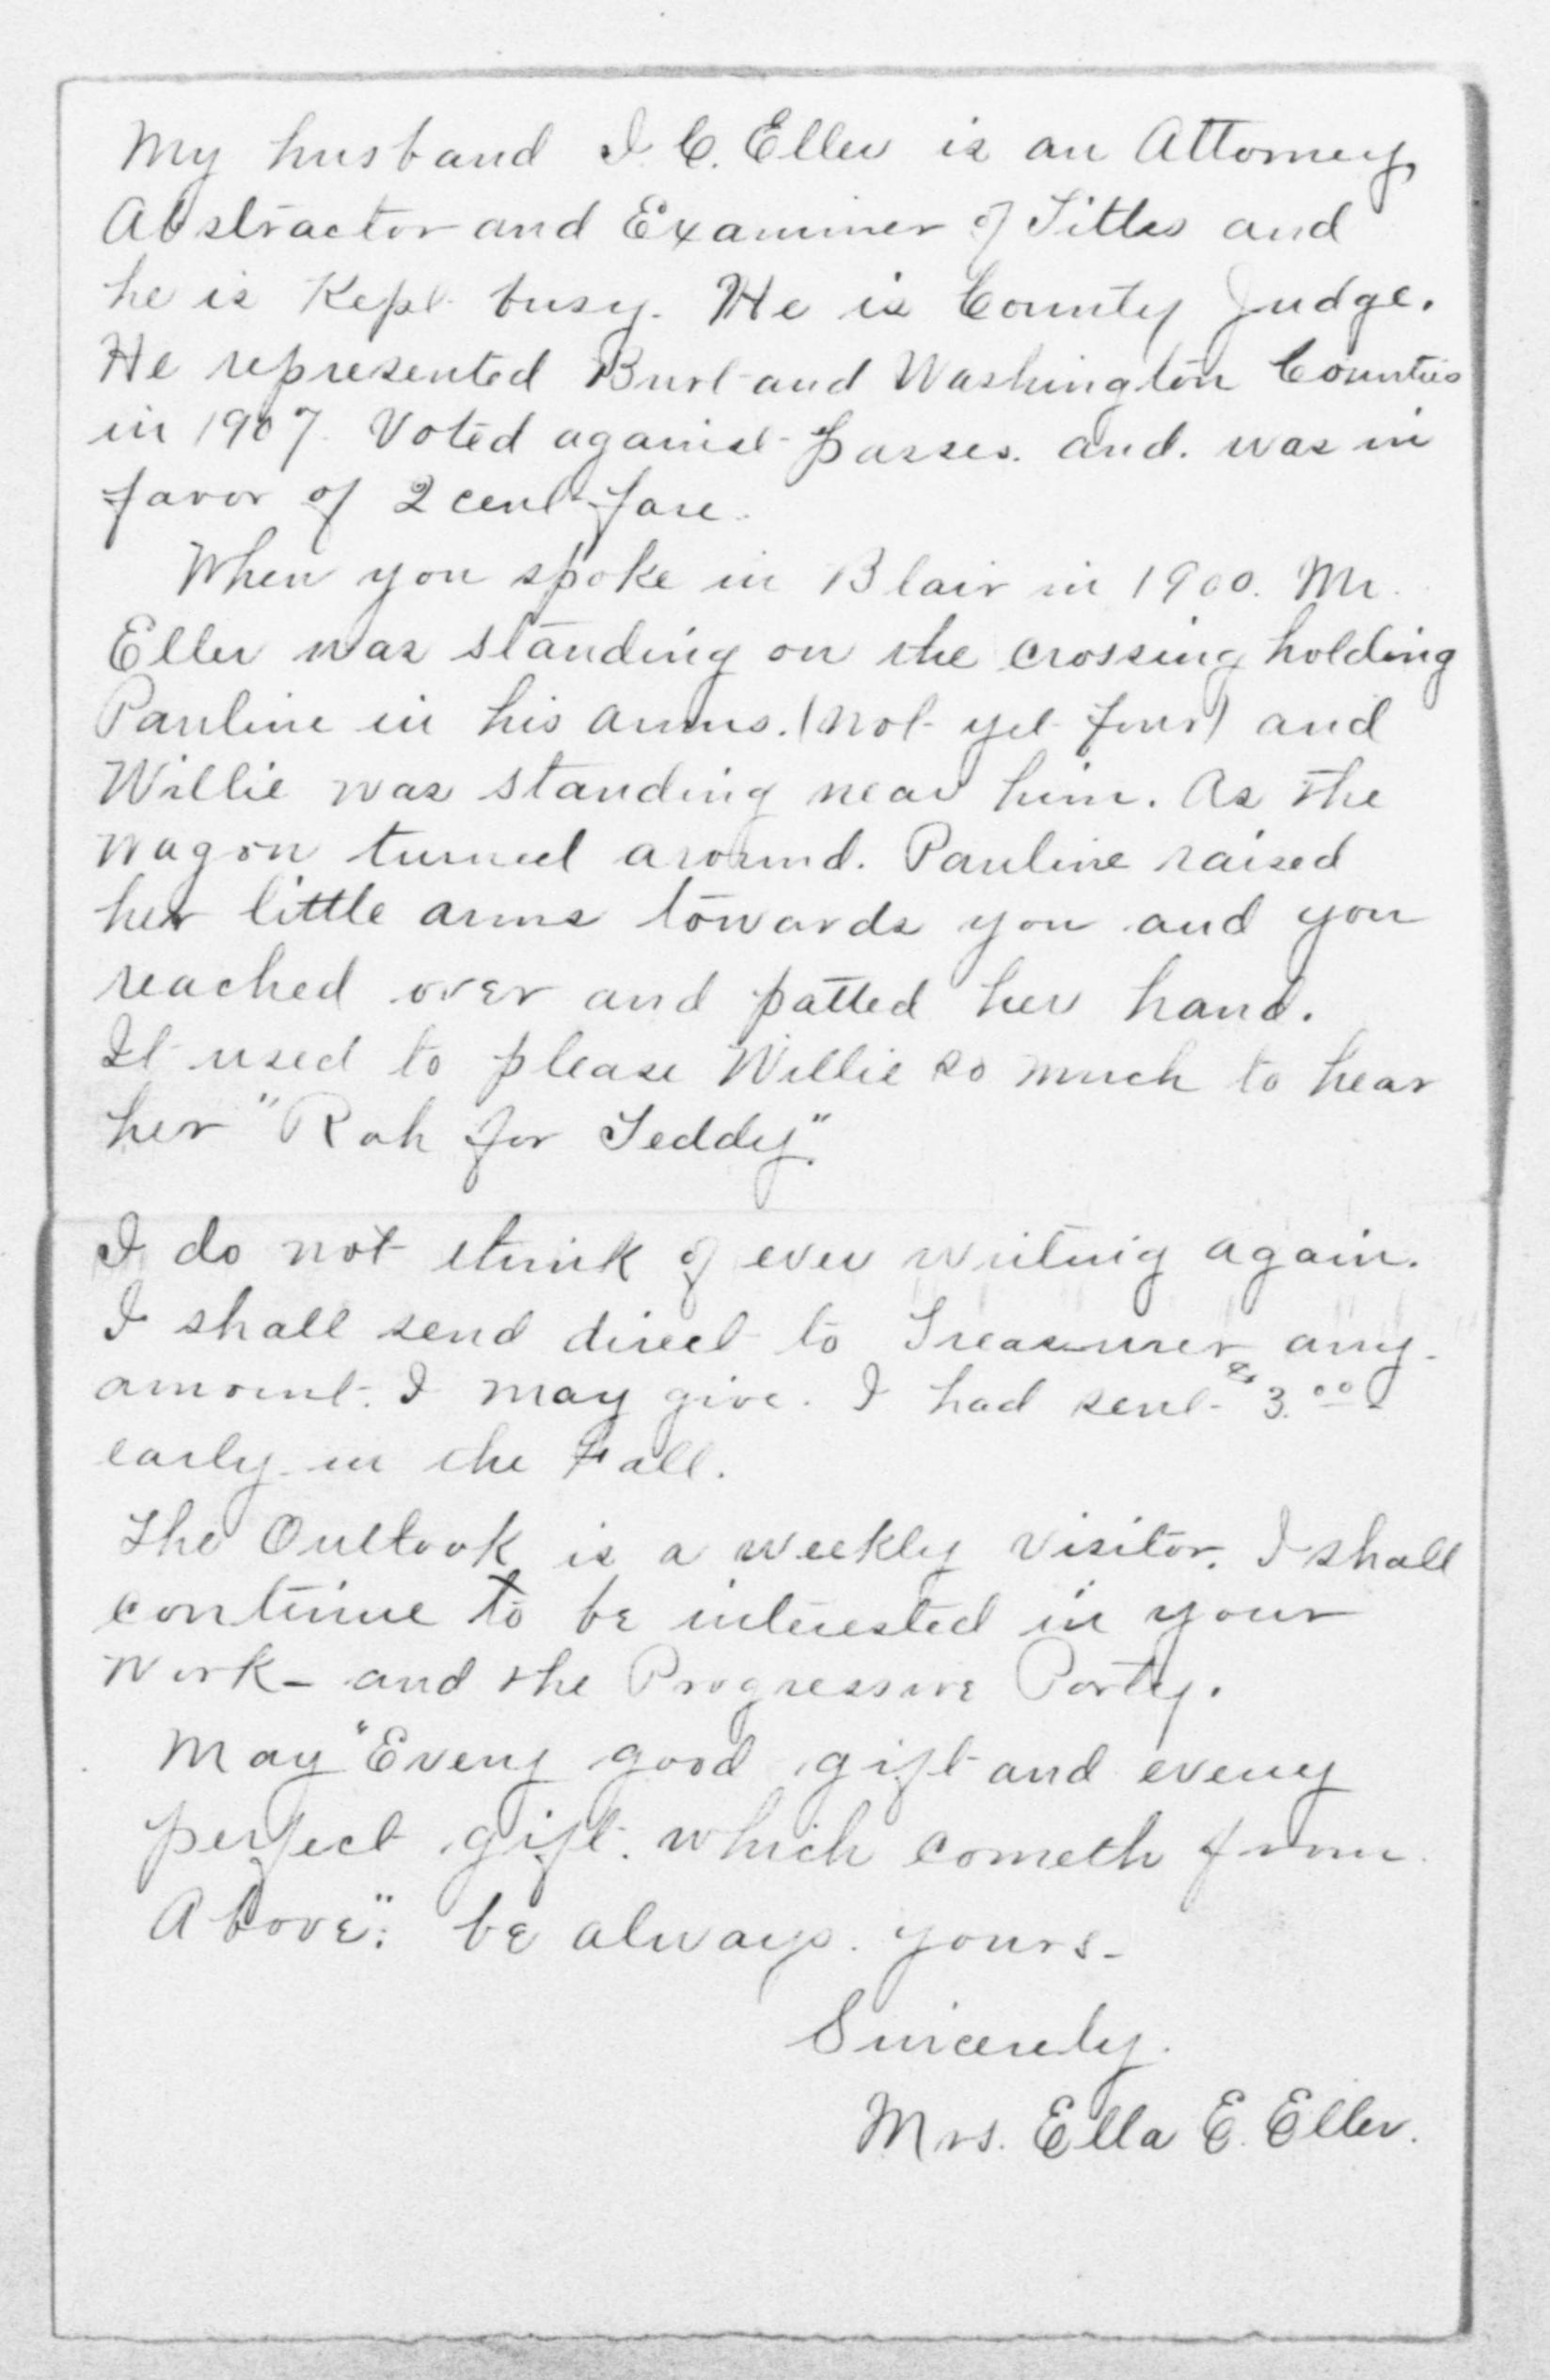 My husband I. C. Eller is an Attorney,
Abstractor and Examiner of Titles and
he is Kept busy. He is County Judge.
He represented Burt and Washington Counties
in 1907. Voted against passes. and. was in
favor of 2 cent fare.
When you spoke in Blair in 1900. Mr.
Eller was standing on the crossing holding
Pauline in his arms. (not yet four) and
Willie was standing near him. As the
wagon turned around. Pauline raised
her little arms towards you and you
reached over and patted her hand.
It used to please Willie so much to hear
her "Rah for Teddy".
I do not think of ever writing again.
I shall send direct to Treasurer any
amount I may give. I had sent $3.00
early in the Fall.
The Outlook is a weekly visitor. I shall
continue to be interested in your
work - and the Progressive Party.
May "Every good gift and every
perfect gift. which cometh from
Above": be always yours -
Sincerely.
Mrs. Ella E. Eller.